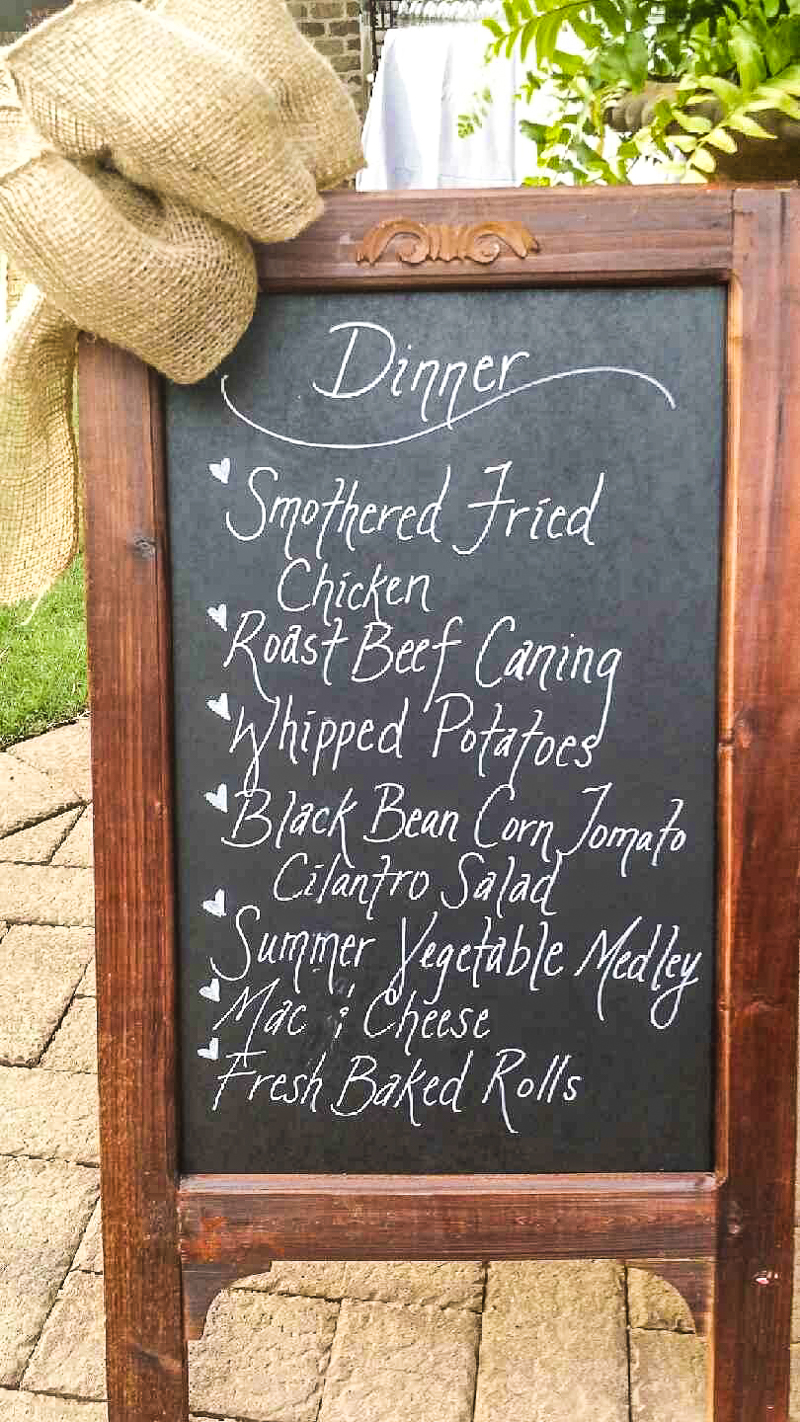 Dinner
Smothered Fried
Chicken
Roast Beef Caning
Whipped Potatoes
Black Bean Corn Tomato
Cilantro Salad
Summer Vegetable Medley
Mac & Cheese
Fresh Baked Rolls